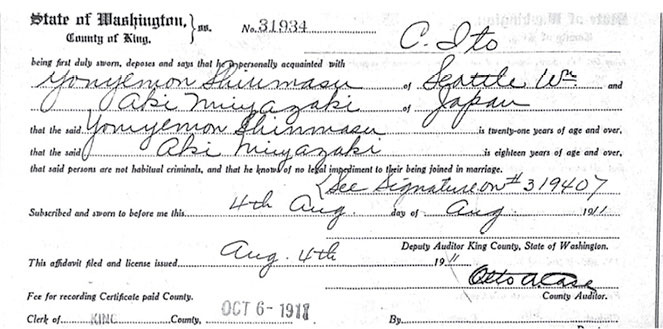 State of Washington, } ss. No. 31934
County of King. C. Ito
being first duly sworn, deposes and says that he is personally acquainted with
Yonyemon Shinmasu of Seattle Wn and
Aki Miyazaki of Japan
that the said Yonyemon Shinmasu is twenty-one years of age and over,
that the said Aki Miyazaki is eighteen years of age and over,
that said persons are not habitual criminals, and that he knows of no legal impediment to their being joined in marriage.
(See Signature on # 319407
Subscribed and sworn to before me this 4th Aug. day of Aug. 1911
Deputy Auditor King County, State of Washington.
This affidavit filed and license issued Aug. 4th 1911
Otto A. Case
Fee for recording Certificate paid County. County Auditor.
Clerk of KING County, OCT 6-1911 By